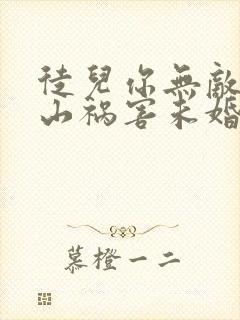 徒兒你無敵
山禍害未婚
慕橙一二